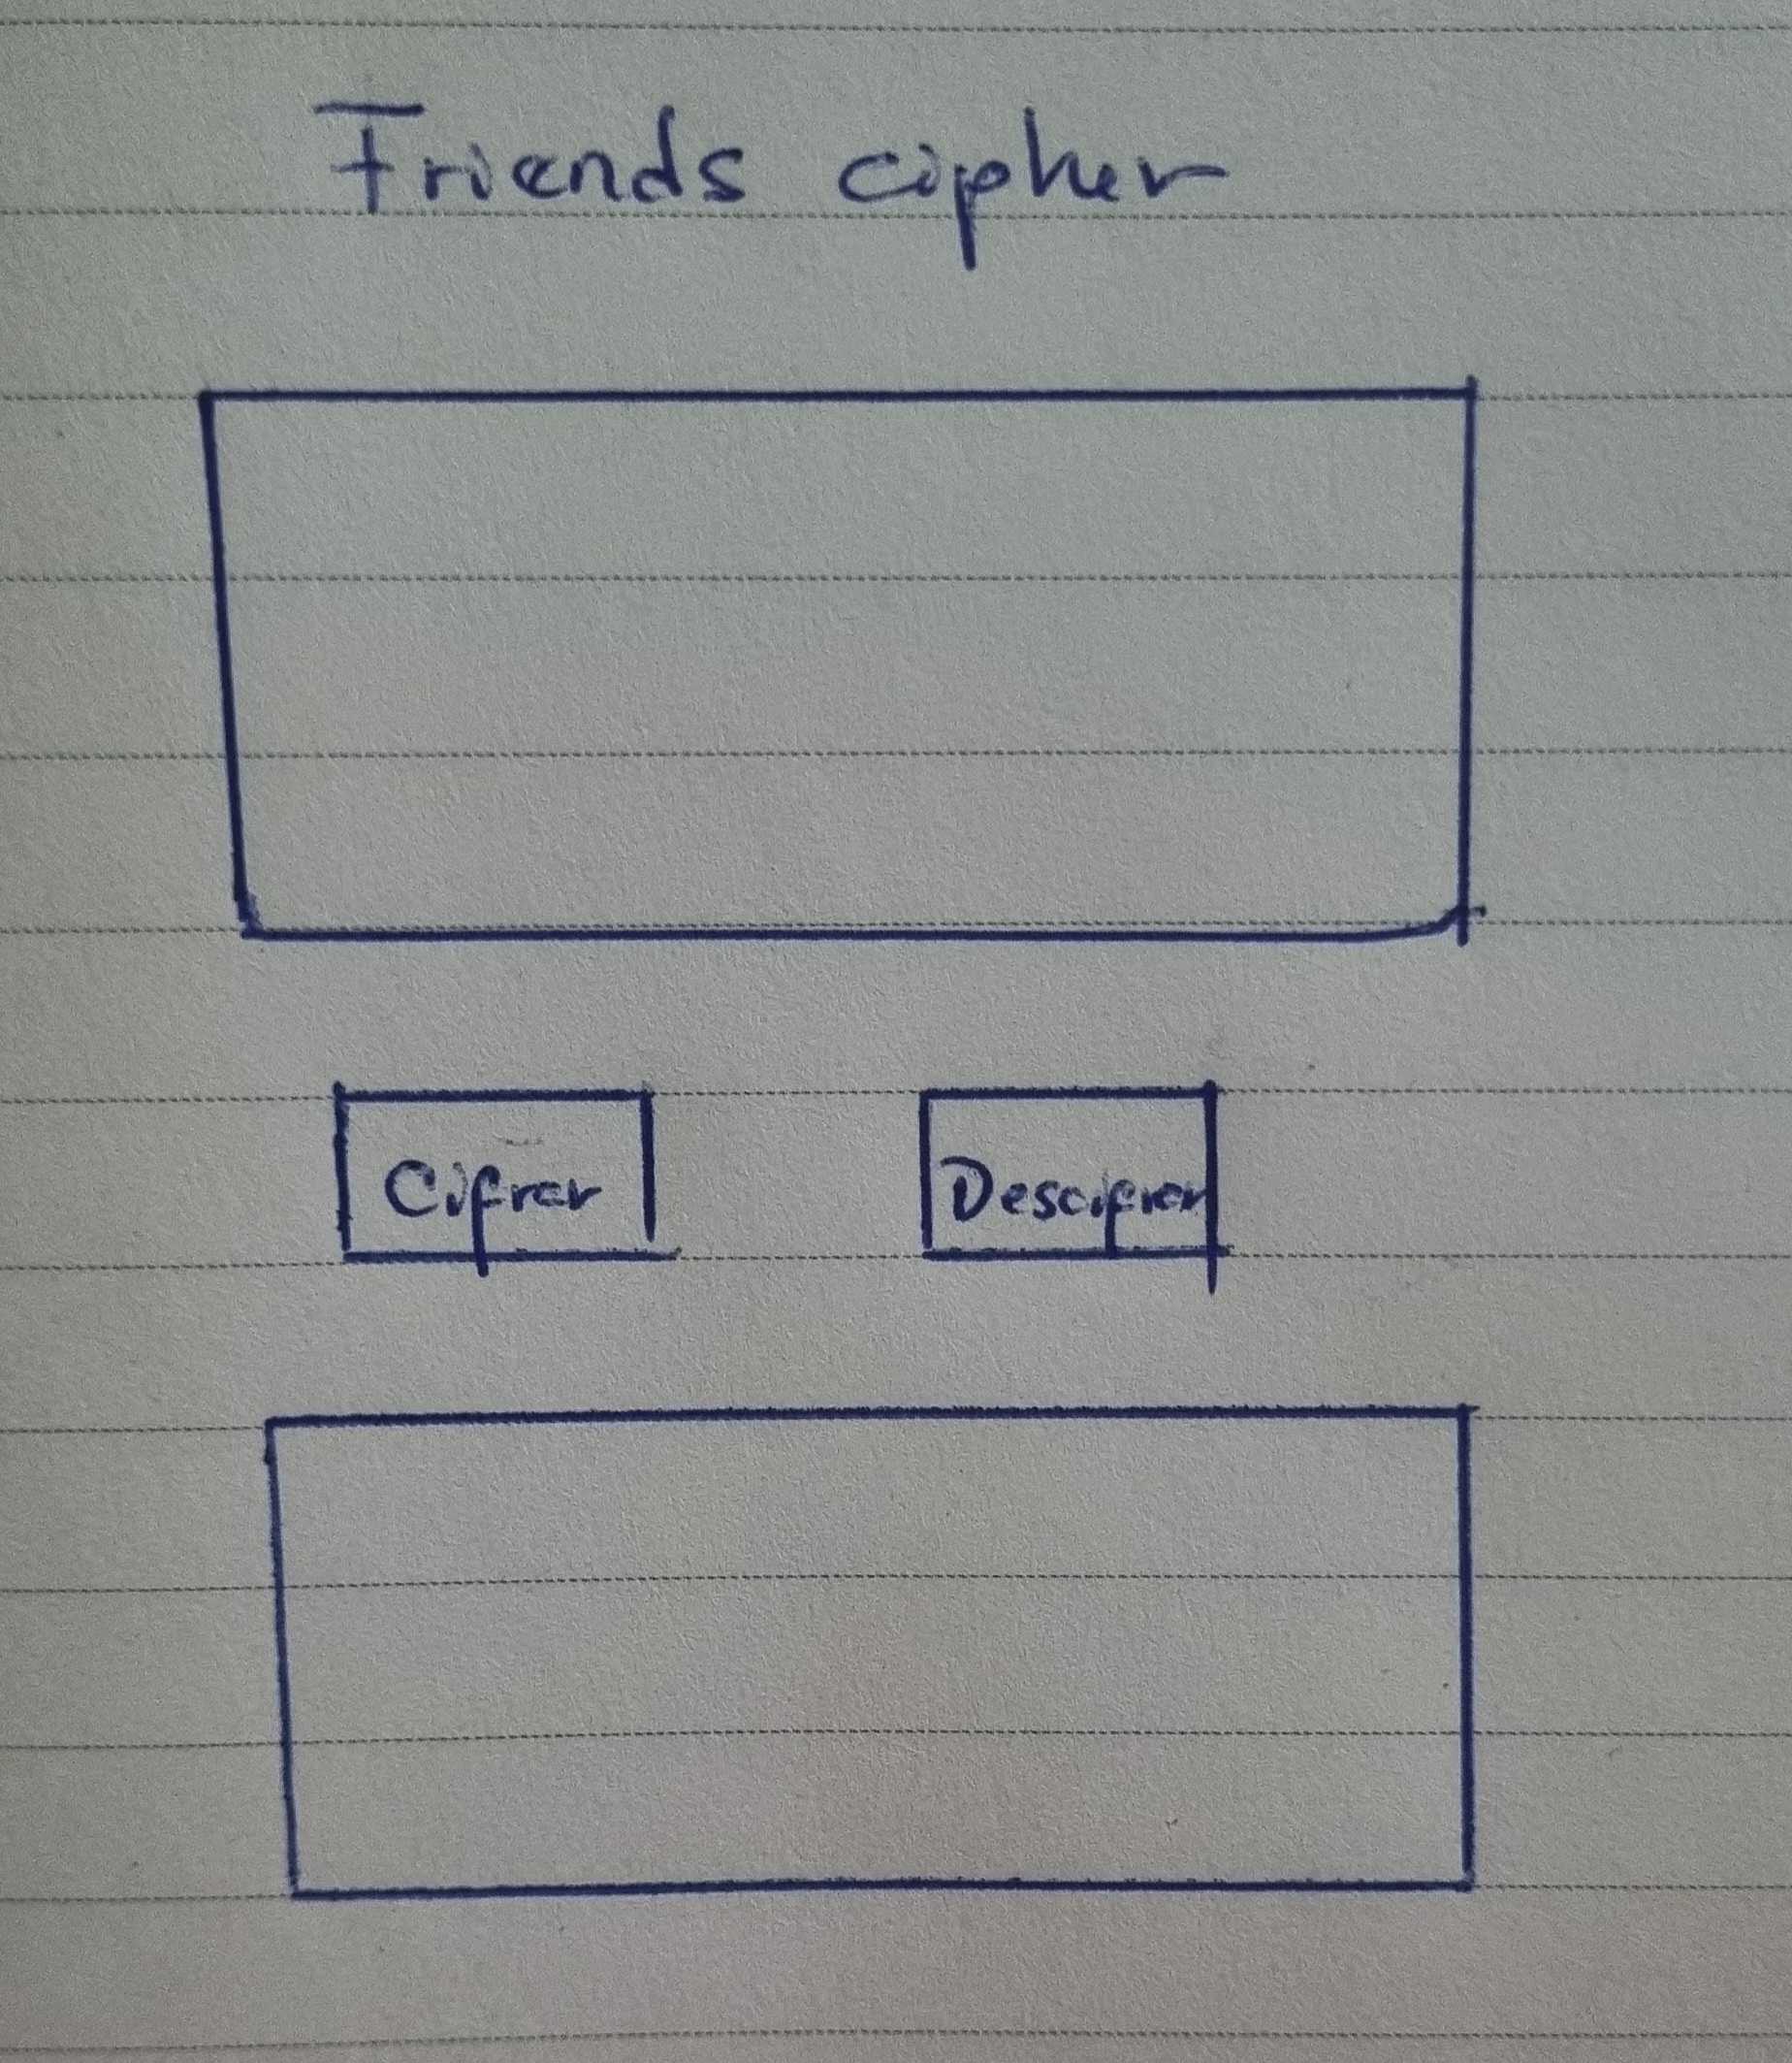 Friends cipher
Cifrar
Descifrar